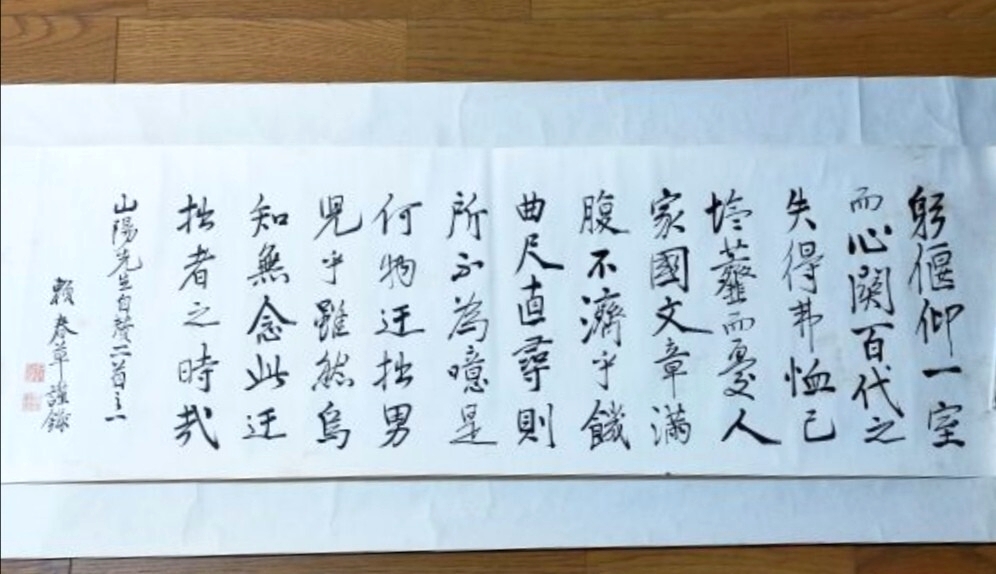 躬偃仰一室
而心關百代之
失得弗恤己
塩虀而憂人
家國文章滿
腹不濟乎饑
曲尺直尋則
所不為噫是
何物迂拙男
児乎雖然烏
知無念此迂
拙者之時哉
山陽先生自賛二首之一
賴春草謹錄